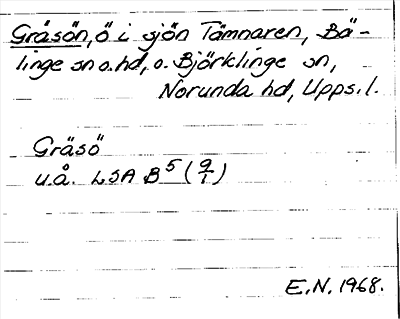 Gräsön, ö i sjön Tämnaren, Bä-
linge sn o. hd, o. Björklinge sn,
Norunda hd, Upps. l.
Gräsö
u.å. LSA B⁵ (9/1)
E.N. 1968.